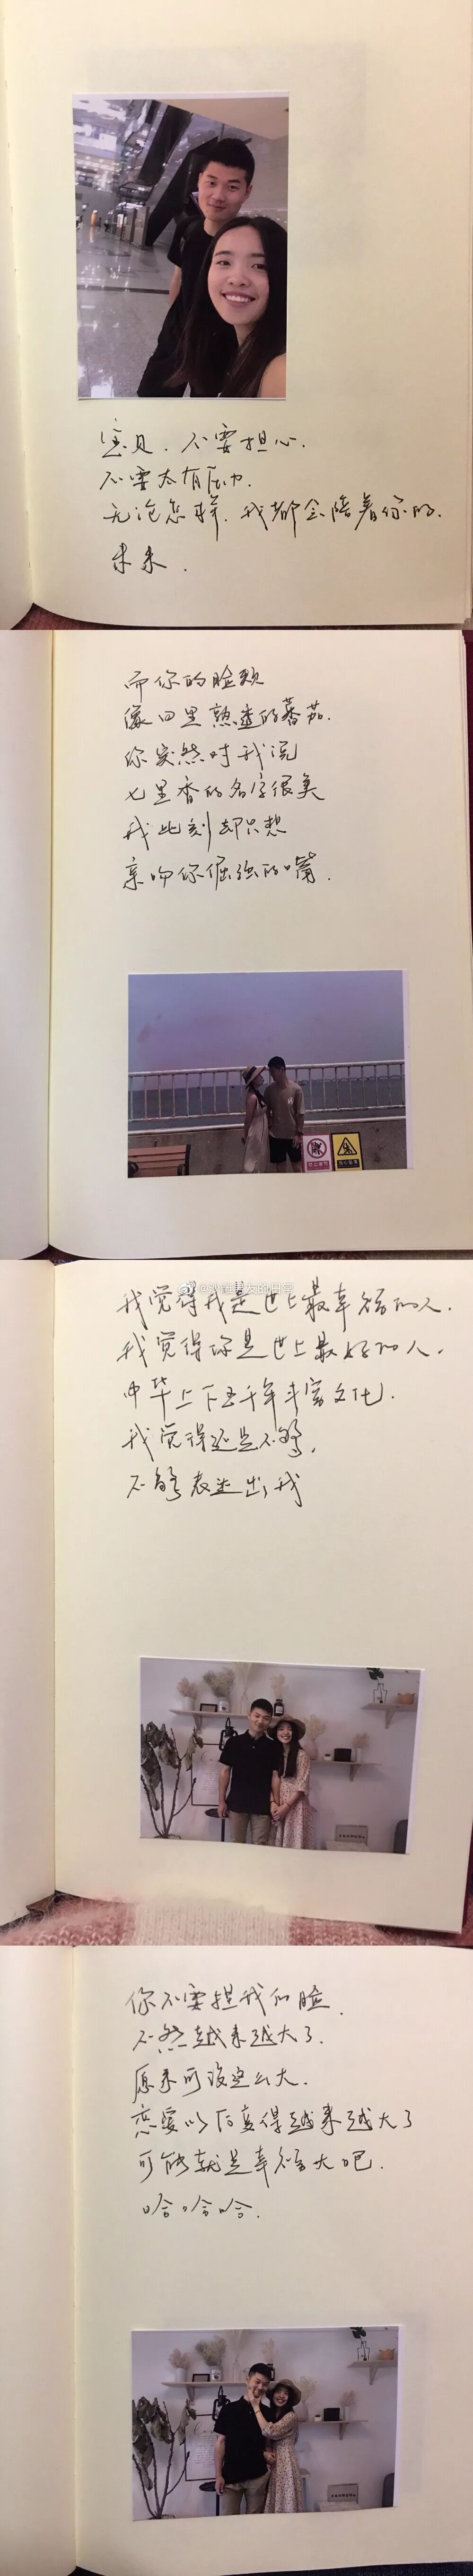 宝贝，不要担心.
不要太有压力.
无论怎样，我都会陪着你的.
未来.
而你的脸颊
像田里熟透的蕃茄.
你突然对我说
七里香的名字很美
我此刻却只想
亲吻你倔强的嘴.
我觉得我是世上最幸福的人.
我觉得你是世上最好的人.
中华上下五千年丰富文化.
我觉得还是不够,
不能表达出我
你不要捏我们脸.
不然越来越大了.
原来可没这么大.
恋爱以后真得越来越大了
可能就是幸福大吧.
哈哈哈.